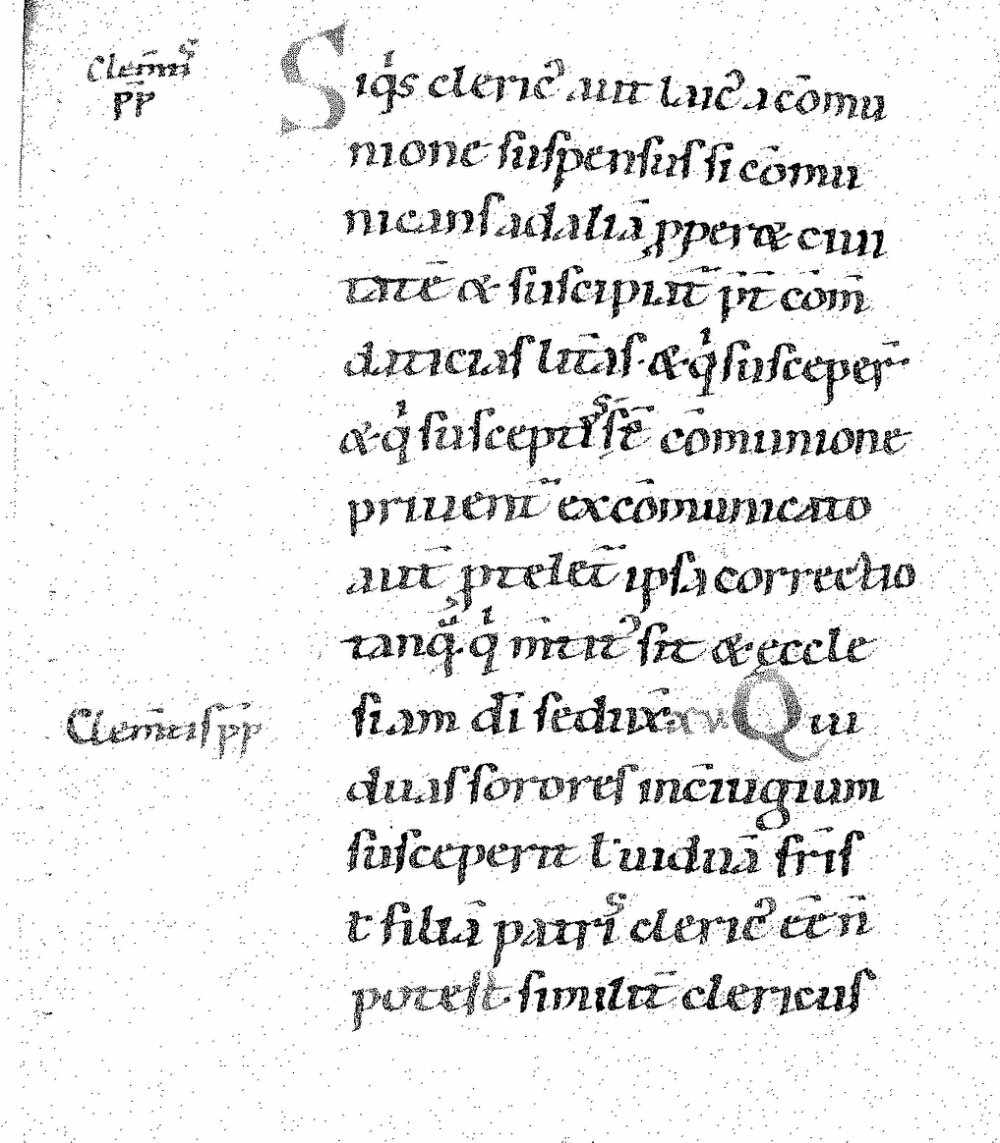 Clem̄tis
pp̄
Siq̍s cleric᾿ aut laic᾿ acōmu
nione suspensus si cōmu
nicans ad aliā ꝓperet ciui
tatē & suscipiat̄ p̄t cōm̄
daticias lit̄as. & q̍ susceper̄
& q̍ susceptis st̄ cōmunione
priuent̄ excōmunicato
aut̄ ptelet̄ ipsa correctio
tanq̄ q̍ m̄tit᾿ sit & eccle
siam dī sedux̄ xv Qui
Clem̄tis pp̄
duas sorores in c̄iugium
susceperit l᾿ uiduā fr̄is
t filiā patris cleric᾿ ee n̄
potest similit̄ clericus